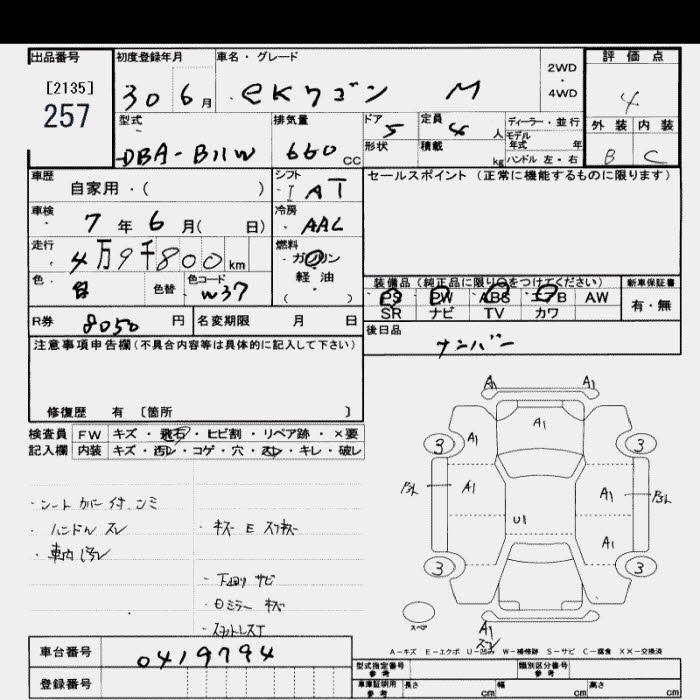 出品番号 初度登録年月 車名・グレード 評価点
[2135] 257 30 6月 eKワゴン M 2WD・4WD 4
型式 排気量 ドア 定員 ディーラー・並行 外装 内装
DBA-B11W 660cc 5 4人 モデル年式 年 B C
形状 積載 kg ハンドル 左・右
車歴 シフト セールスポイント(正常に機能するものに限ります)
自家用・( ) I AT
車検 冷房
7年6月( 日) AAC
走行 燃料
4万9千800km ガソリン
軽・油
( )
色 色替 色コード 装備品(純正品に限り○をつけてください) 新車保証書
W37 PS PW ABS エアB AW 有・無
SR ナビ TV カワ
R券 8050円 名変期限 月 日 後日品
ナンバー
注意事項申告欄(不具合内容等は具体的に記入して下さい)
修復歴 有 [箇所 ]
検査員 FW キズ・飛石・ヒビ割・リペア跡・×要
記入欄 内装 キズ・汚レ・コゲ・穴・スレ・キレ・破レ
・シートカバー付、シミ
・ハンドルスレ ・キズ E スリキズ
・車内汚レ
・下回りサビ
・ロミラーキズ
A1 A1
A1
3 A1 3
A1 A1
U1
A1
3 3
スペア A1
A-キズ E-エクボ U-凹み W-補修跡 S-サビ C-腐食 XX-交換済
車台番号 0419794
型式指定番号 参考 類別区分番号 参考
登録番号
車庫証明用 参考 長さ cm 幅 cm 高さ cm